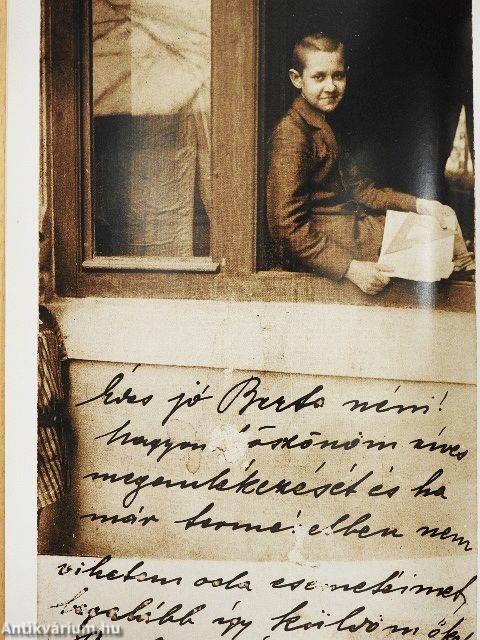 Édes jó Berta néni!
nagyon köszönöm szíves
megemlékezését és ha
már természetben nem
vihetem oda csemetéimet,
legalább így küldöm őket
Antikvárium.hu